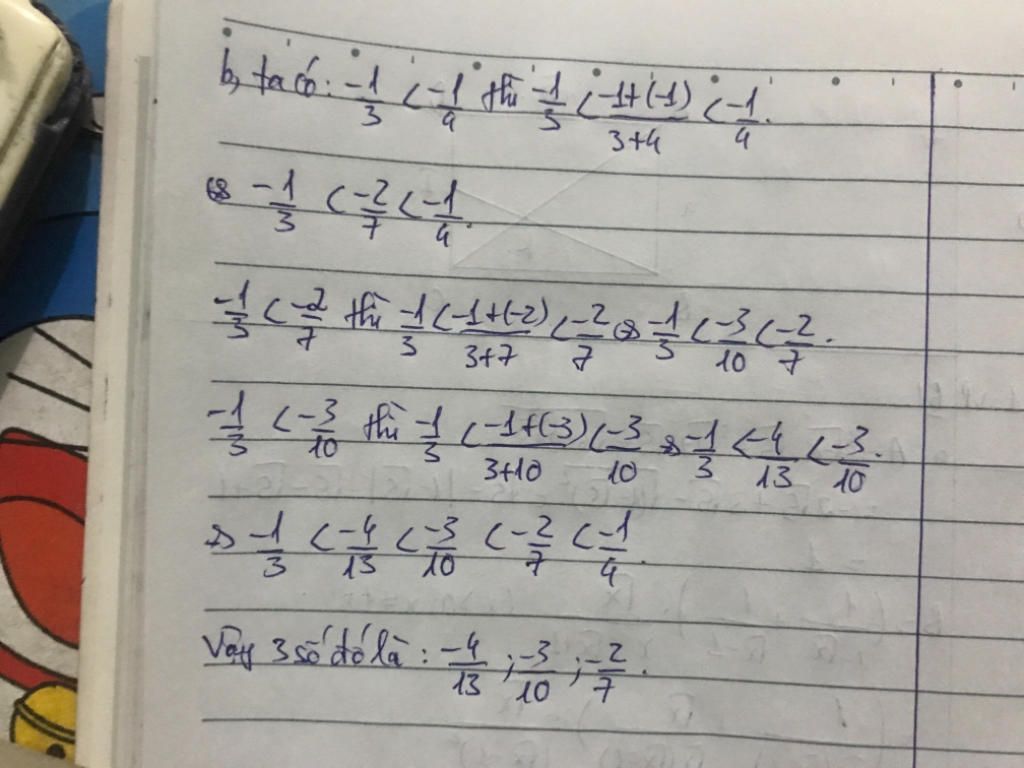 b, ta có: -1/3 < -1/4 thì -1/3 < -1+(-1)/3+4 < -1/4.
⇔ -1/3 < -2/7 < -1/4.
-1/3 < -2/7 thì -1/3 < -1+(-2)/3+7 < -2/7 ⇔ -1/3 < -3/10 < -2/7.
-1/3 < -3/10 thì -1/3 < -1+(-3)/3+10 < -3/10 ⇒ -1/3 < -4/13 < -3/10.
⇒ -1/3 < -4/13 < -3/10 < -2/7 < -1/4.
Vậy 3 số đó là: -4/13 ; -3/10 ; -2/7.